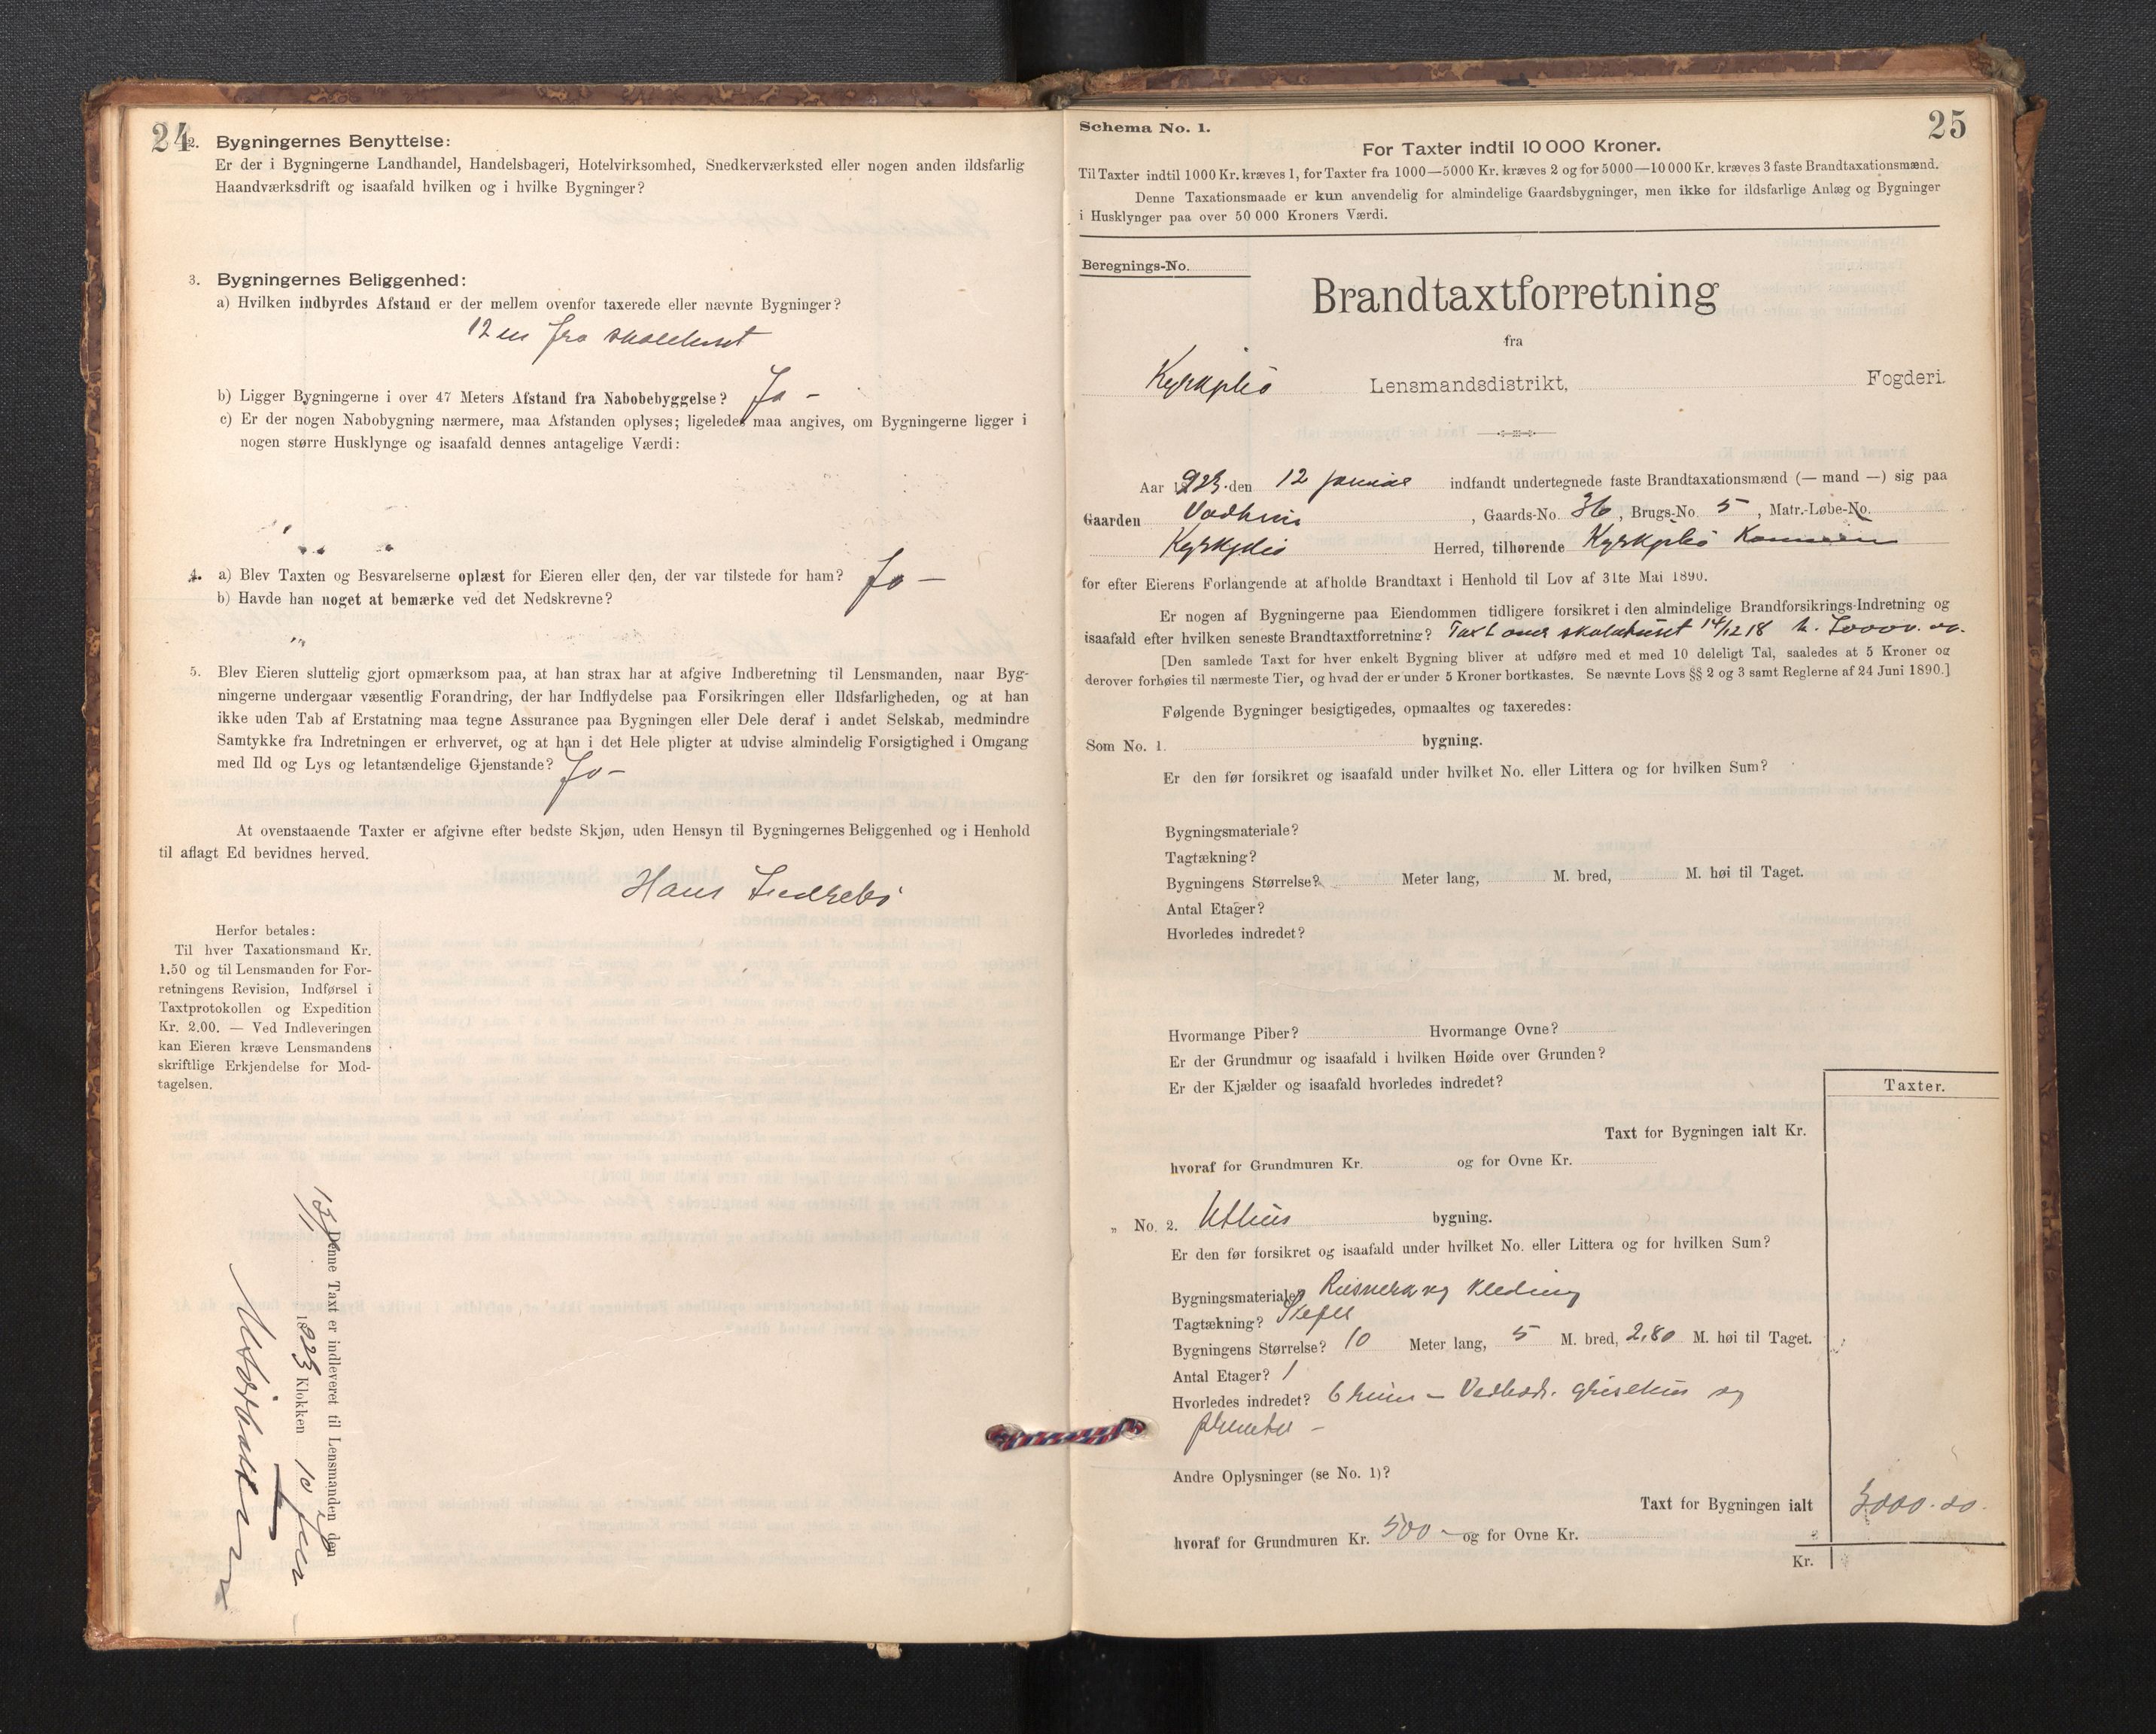 24
2. Bygningernes Benyttelse:
Er der i Bygningerne Landhandel, Handelsbageri, Hotelvirksomhed, Snedkerværksted eller nogen anden ildsfarlig
Haandværksdrift og isaafald hvilken og i hvilke Bygninger?
3. Bygningernes Beliggenhed:
a) Hvilken indbyrdes Afstand er der mellem ovenfor taxerede eller nævnte Bygninger?
12 m fra skolehuset
b) Ligger Bygningerne i over 47 Meters Afstand fra Nabobebyggelse? Ja –
c) Er der nogen Nabobygning nærmere, maa Afstanden oplyses; ligeledes maa angives, om Bygningerne ligger i
nogen større Husklynge og isaafald dennes antagelige Værdi:
4. a) Blev Taxten og Besvarelserne oplæst for Eieren eller den, der var tilstede for ham? Ja –
b) Havde han noget at bemærke ved det Nedskrevne?
"
5. Blev Eieren sluttelig gjort opmærksom paa, at han strax har at afgive Indberetning til Lensmanden, naar Byg-
ningerne undergaar væsentlig Forandring, der har Indflydelse paa Forsikringen eller Ildsfarligheden, og at han
ikke uden Tab af Erstatning maa tegne Assurance paa Bygningen eller Dele deraf i andet Selskab, medmindre
Samtykke fra Indretningen er erhvervet, og at han i det Hele pligter at udvise almindelig Forsigtighed i Omgang
med Ild og Lys og letantændelige Gjenstande? Ja –
At ovenstaaende Taxter er afgivne efter bedste Skjøn, uden Hensyn til Bygningernes Beliggenhed og i Henhold
til aflagt Ed bevidnes herved.
Hans Indrebø
Herfor betales:
Til hver Taxationsmand Kr.
1.50 og til Lensmanden for For-
retningens Revision, Indførsel i
Taxtprotokollen og Expedition
Kr. 2.00. — Ved Indleveringen
kan Eieren kræve Lensmandens
skriftlige Erkjendelse for Mod-
tagelsen.
Denne Taxt er indleveret til Lensmanden den
13/1 1923 Klokken 10
25
Schema No. 1.
For Taxter indtil 10 000 Kroner.
Til Taxter indtil 1000 Kr. kræves 1, for Taxter fra 1000—5000 Kr. kræves 2 og for 5000—10 000 Kr. kræves 3 faste Brandtaxationsmænd.
Denne Taxationsmaade er kun anvendelig for almindelige Gaardsbygninger, men ikke for ildsfarlige Anlæg og Bygninger
i Husklynger paa over 50 000 Kroners Værdi.
Beregnings-No.
Brandtaxtforretning
fra
Kyrkjebø Lensmandsdistrikt, Fogderi.
Aar 1923 den 12 januar indfandt undertegnede faste Brandtaxationsmænd (— mand —) sig paa
Gaarden Vadheim, Gaards-No. 36, Brugs-No. 5, Matr.-Løbe-No.
Kyrkjebø Herred, tilhørende Kyrkjebø Kommune
for efter Eierens Forlangende at afholde Brandtaxt i Henhold til Lov af 31te Mai 1890.
Er nogen af Bygningerne paa Eiendommen tidligere forsikret i den almindelige Brandforsikrings-Indretning og
isaafald efter hvilken seneste Brandtaxtforretning? Taxt over skolehuset 14/12 18
[Den samlede Taxt for hver enkelt Bygning bliver at udføre med et med 10 deleligt Tal, saaledes at 5 Kroner og
derover forhøies til nærmeste Tier, og hvad der er under 5 Kroner bortkastes. Se nævnte Lovs §§ 2 og 3 samt Reglerne af 24 Juni 1890.]
Følgende Bygninger besigtigedes, opmaaltes og taxeredes:
Som No. 1. bygning.
Er den før forsikret og isaafald under hvilket No. eller Littera og for hvilken Sum?
Bygningsmateriale?
Tagtækning?
Bygningens Størrelse? Meter lang, M. bred, M. høi til Taget.
Antal Etager?
Hvorledes indredet?
Hvormange Piber? Hvormange Ovne?
Er der Grundmur og isaafald i hvilken Høide over Grunden?
Er der Kjælder og isaafald hvorledes indredet?
Taxter.
Taxt for Bygningen ialt Kr.
hvoraf for Grundmuren Kr. og for Ovne Kr.
" No. 2. Uthus bygning.
Er den før forsikret og isaafald under hvilket No. eller Littera og for hvilken Sum?
Bygningsmateriale? Reisverk og kledning
Tagtækning? Skifer
Bygningens Størrelse? 10 Meter lang, 5 M. bred, 2,80 M. høi til Taget.
Antal Etager? 1
Hvorledes indredet? 6 rum – Vedbod, grisehus og
priveter –
Andre Oplysninger (se No. 1)?
Taxt for Bygningen ialt 3000.00.
hvoraf for Grundmuren Kr. 500 – og for Ovne Kr.
Kr.